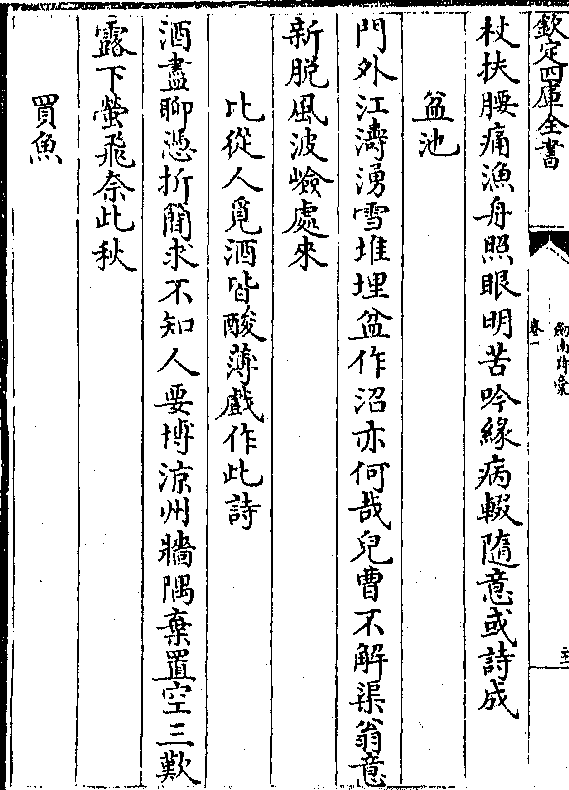 欽定四庫全書
劍南詩稾
卷一
杖扶腰痛漁舟照眼明苦吟緣病輟隨意或詩成
盆池
門外江濤湧雪堆埋盆作沼亦何哉兒曹不解渠翁意
新脱風波嶮處來
比從人覓酒皆酸薄戲作此詩
酒盡聊憑折簡求不知人要博涼州牆隅棄置空三歎
露下螢飛奈此秋
買魚